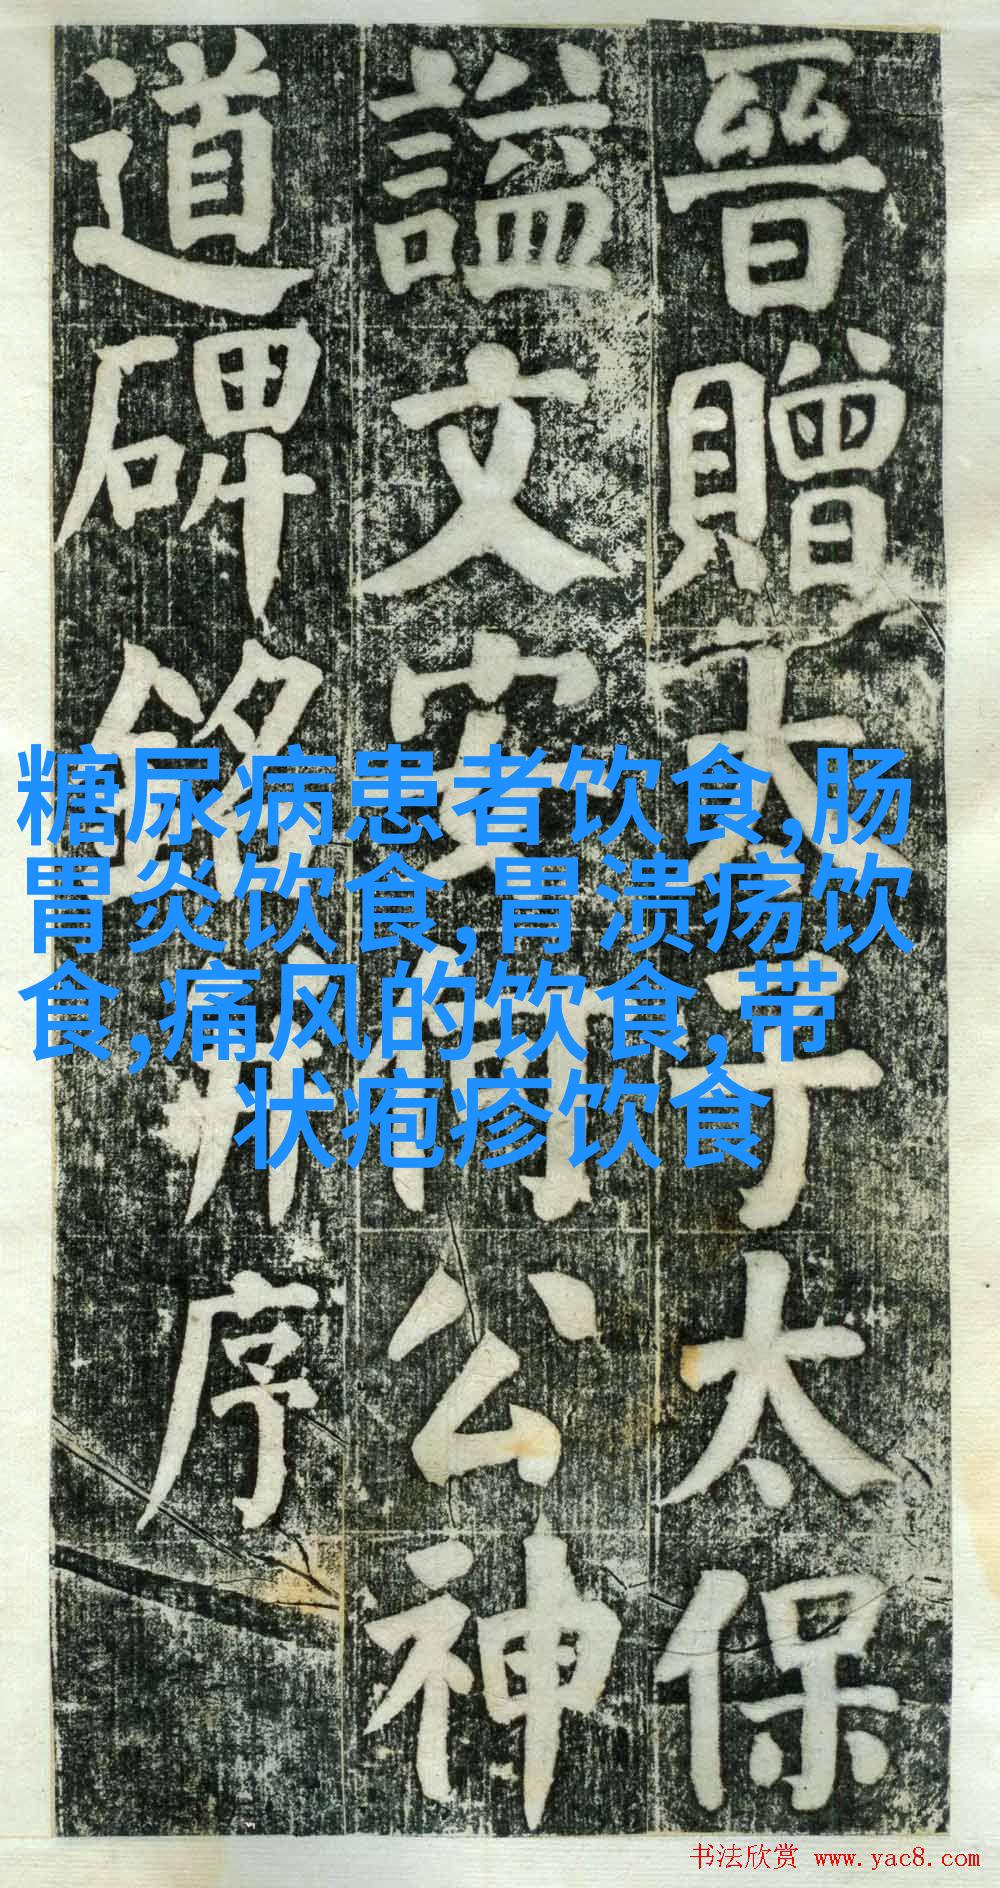 晉贈太子太保
謚文安何公神
道碑銘并序
糖尿病患者饮食,肠
胃炎饮食,胃溃疡饮
食,痛风的饮食,带
状疱疹饮食
书法欣赏 www.yac8.com